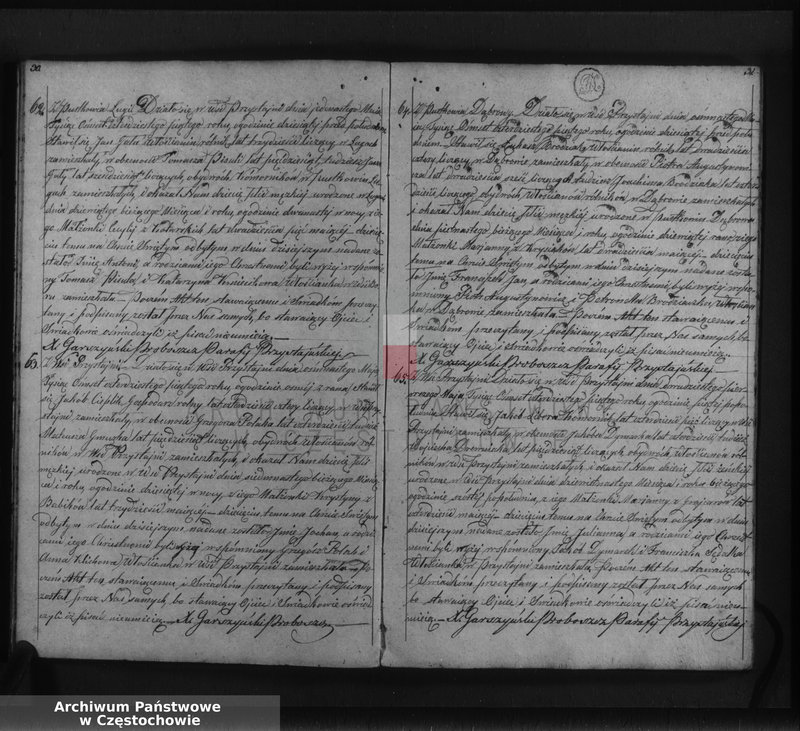 30
62. Z Pustkowia Ługi. Działo się w Wsi Przystajni dnia
Tysiąc Ośmset Czterdziestego piątego roku, o godzinie dziesiątej przed południem
Stawił się Jan Gała Włościanin rolnik, lat trzydzieści liczący w Ługach
zamieszkały w obecności Tomasza Pluli lat pięćdziesiąt, tudzież Jana
Gały lat sześćdziesiąt liczących, obydwóch Komorników w pustkowiu Łu-
gach zamieszkałych, i okazał Nam dziecię płci męzkiej urodzone w Ługach
dnia dziewiątego bieżącego Miesiąca i roku, o godzinie dwunastej w nocy, z je-
go Małżonki z lat dwadzieścia pięć mającej. dziecię-
ciu temu na Chrzcie Świętym odbytym w dniu dzisiejszym nadane zo-
stało Imię Antoni, a rodzicami jego Chrzestnemi byli wyżej wspomnio-
ny Tomasz i Katarzyna Włościanka w
zamieszkała. Poczem Akt ten stawiającemu i Świadkom przeczy-
tany i podpisany został przez Nas samych, bo stawiający Ojciec i
Świadkowie oświadczyli iż pisać nieumieią.
X. Garszyński Proboszcz Parafij Przystajńskiej
63. Z Wsi Przystajni. Działo się w Wsi Przystajni dnia siedmnastego Maja
Tysiąc Ośmset czterdziestego piątego roku, o godzinie ósmej z rana, Stawił
się Jakób Cieplik Gospodarz rolny lat czterdzieści cztery liczący w Wsi Przy-
stajni zamieszkały, w obecności Grzegorza Polaka lat czterdzieści tudzież
Mateusza lat pięćdziesiąt liczących, obydwóch Włościanów rol-
ników w Wsi Przystajni zamieszkałych, i okazał Nam dziecię płci
męzkiej urodzone w Wsi Przystajni dnia siedmnastego bieżącego Miesią-
ca i roku, o godzinie dziesiątej w nocy, z jego Małżonki Krystyny z
Babików lat trzydzieści mającej. dziecięciu temu na Chrzcie Świętym
odbytym w dniu dzisiejszym, nadane zostało Imię Jochan, a rodzi-
cami jego Chrzestnemi byli wyżej wspomniony Grzegorz Polak i
Anna Klichona Włościanka w Wsi Przystajni zamieszkała. Po-
czem Akt ten stawiającemu i Świadkom przeczytany i podpisany
został przez Nas samych, bo stawiający Ojciec i Świadkowie oświad-
czyli iż pisać nieumieią. X. Garszyński Proboszcz
31
64. Z Pustkowia Dąbrowy. Działo się w Wsi Przystajni dnia
Tysiąc Ośmset czterdziestego piątego roku, o godzinie dziesiątej przed połu-
dniem. Stawił się Łukasz Brodziak Włościanin, rolnik, lat dwadzieścia
cztery liczący w Dąbrowie zamieszkały, w obecności Piotra Augustyno-
lat dwadzieścia sześć liczącego, tudzież Joachima Brodziaka lat czter-
dzieści liczącego, obydwóch Włościanów rolników w Dąbrowie zamieszkałych
i okazał Nam dziecię płci męzkiej urodzone w Pustkowiu Dąbrowie
dnia piętnastego bieżącego Miesiąca i roku, o godzinie dziewiątej rano z jego
Małżonki Marjanny z lat dwadzieścia mającej. dziecięciu
temu na Chrzcie Świętym odbytym w dniu dzisiejszym nadane zosta-
ło Imię Franciszek Jan, a rodzicami jego Chrzestnemi byli wyżej wspo-
mniony Piotr i Petronela Brodziaczka, Włościan-
ka w Dąbrowie zamieszkała. Poczem Akt ten stawiającemu i
Świadkom przeczytany i podpisany został przez Nas samych bo
stawiający Ojciec i Świadkowie oświadczyli iż pisać nieumieią.
X. Garszyński Proboszcz Parafij Przystajńskiej
65. Z Wsi Przystajni. Działo się w Wsi Przystajni dnia dwudziestego pier-
wszego Maja Tysiąc Ośmset czterdziestego piątego roku, o godzinie piątej po po-
łudniu. Stawił się Jakób Komornik, lat czterdzieści pięć liczący w Wsi
Przystajni zamieszkały, w obecności Jakóba Dymarka lat czterdzieści, tudzież
Wojciecha lat pięćdziesiąt liczących, obydwóch Włościanów rol-
ników w Wsi Przystajni zamieszkałych, i okazał Nam dziecię płci żeńskiej
urodzone w Wsi Przystajni dnia dziewiętnastego Miesiąca i roku bieżącego
o godzinie szóstej po południu, z jego Małżonki Marjanny z lat
czterdzieści mającej. dziecięciu temu na Chrzcie Świętym odbytym w dniu
dzisiejszym nadane zostało Imię Julianna, a rodzicami jego Chrzest-
nemi byli wyżej wspomniony Jakób Dymarski i Franciszka
Włościanka w Przystajni zamieszkała. Poczem Akt ten stawiającemu
i Świadkom przeczytany i podpisany został przez Nas samych
bo stawiający Ojciec i Świadkowie oświadczyli iż pisać nieu-
mieią. X. Garszyński Proboszcz Parafij Przystajńskiej
Archiwum Państwowe
w Częstochowie